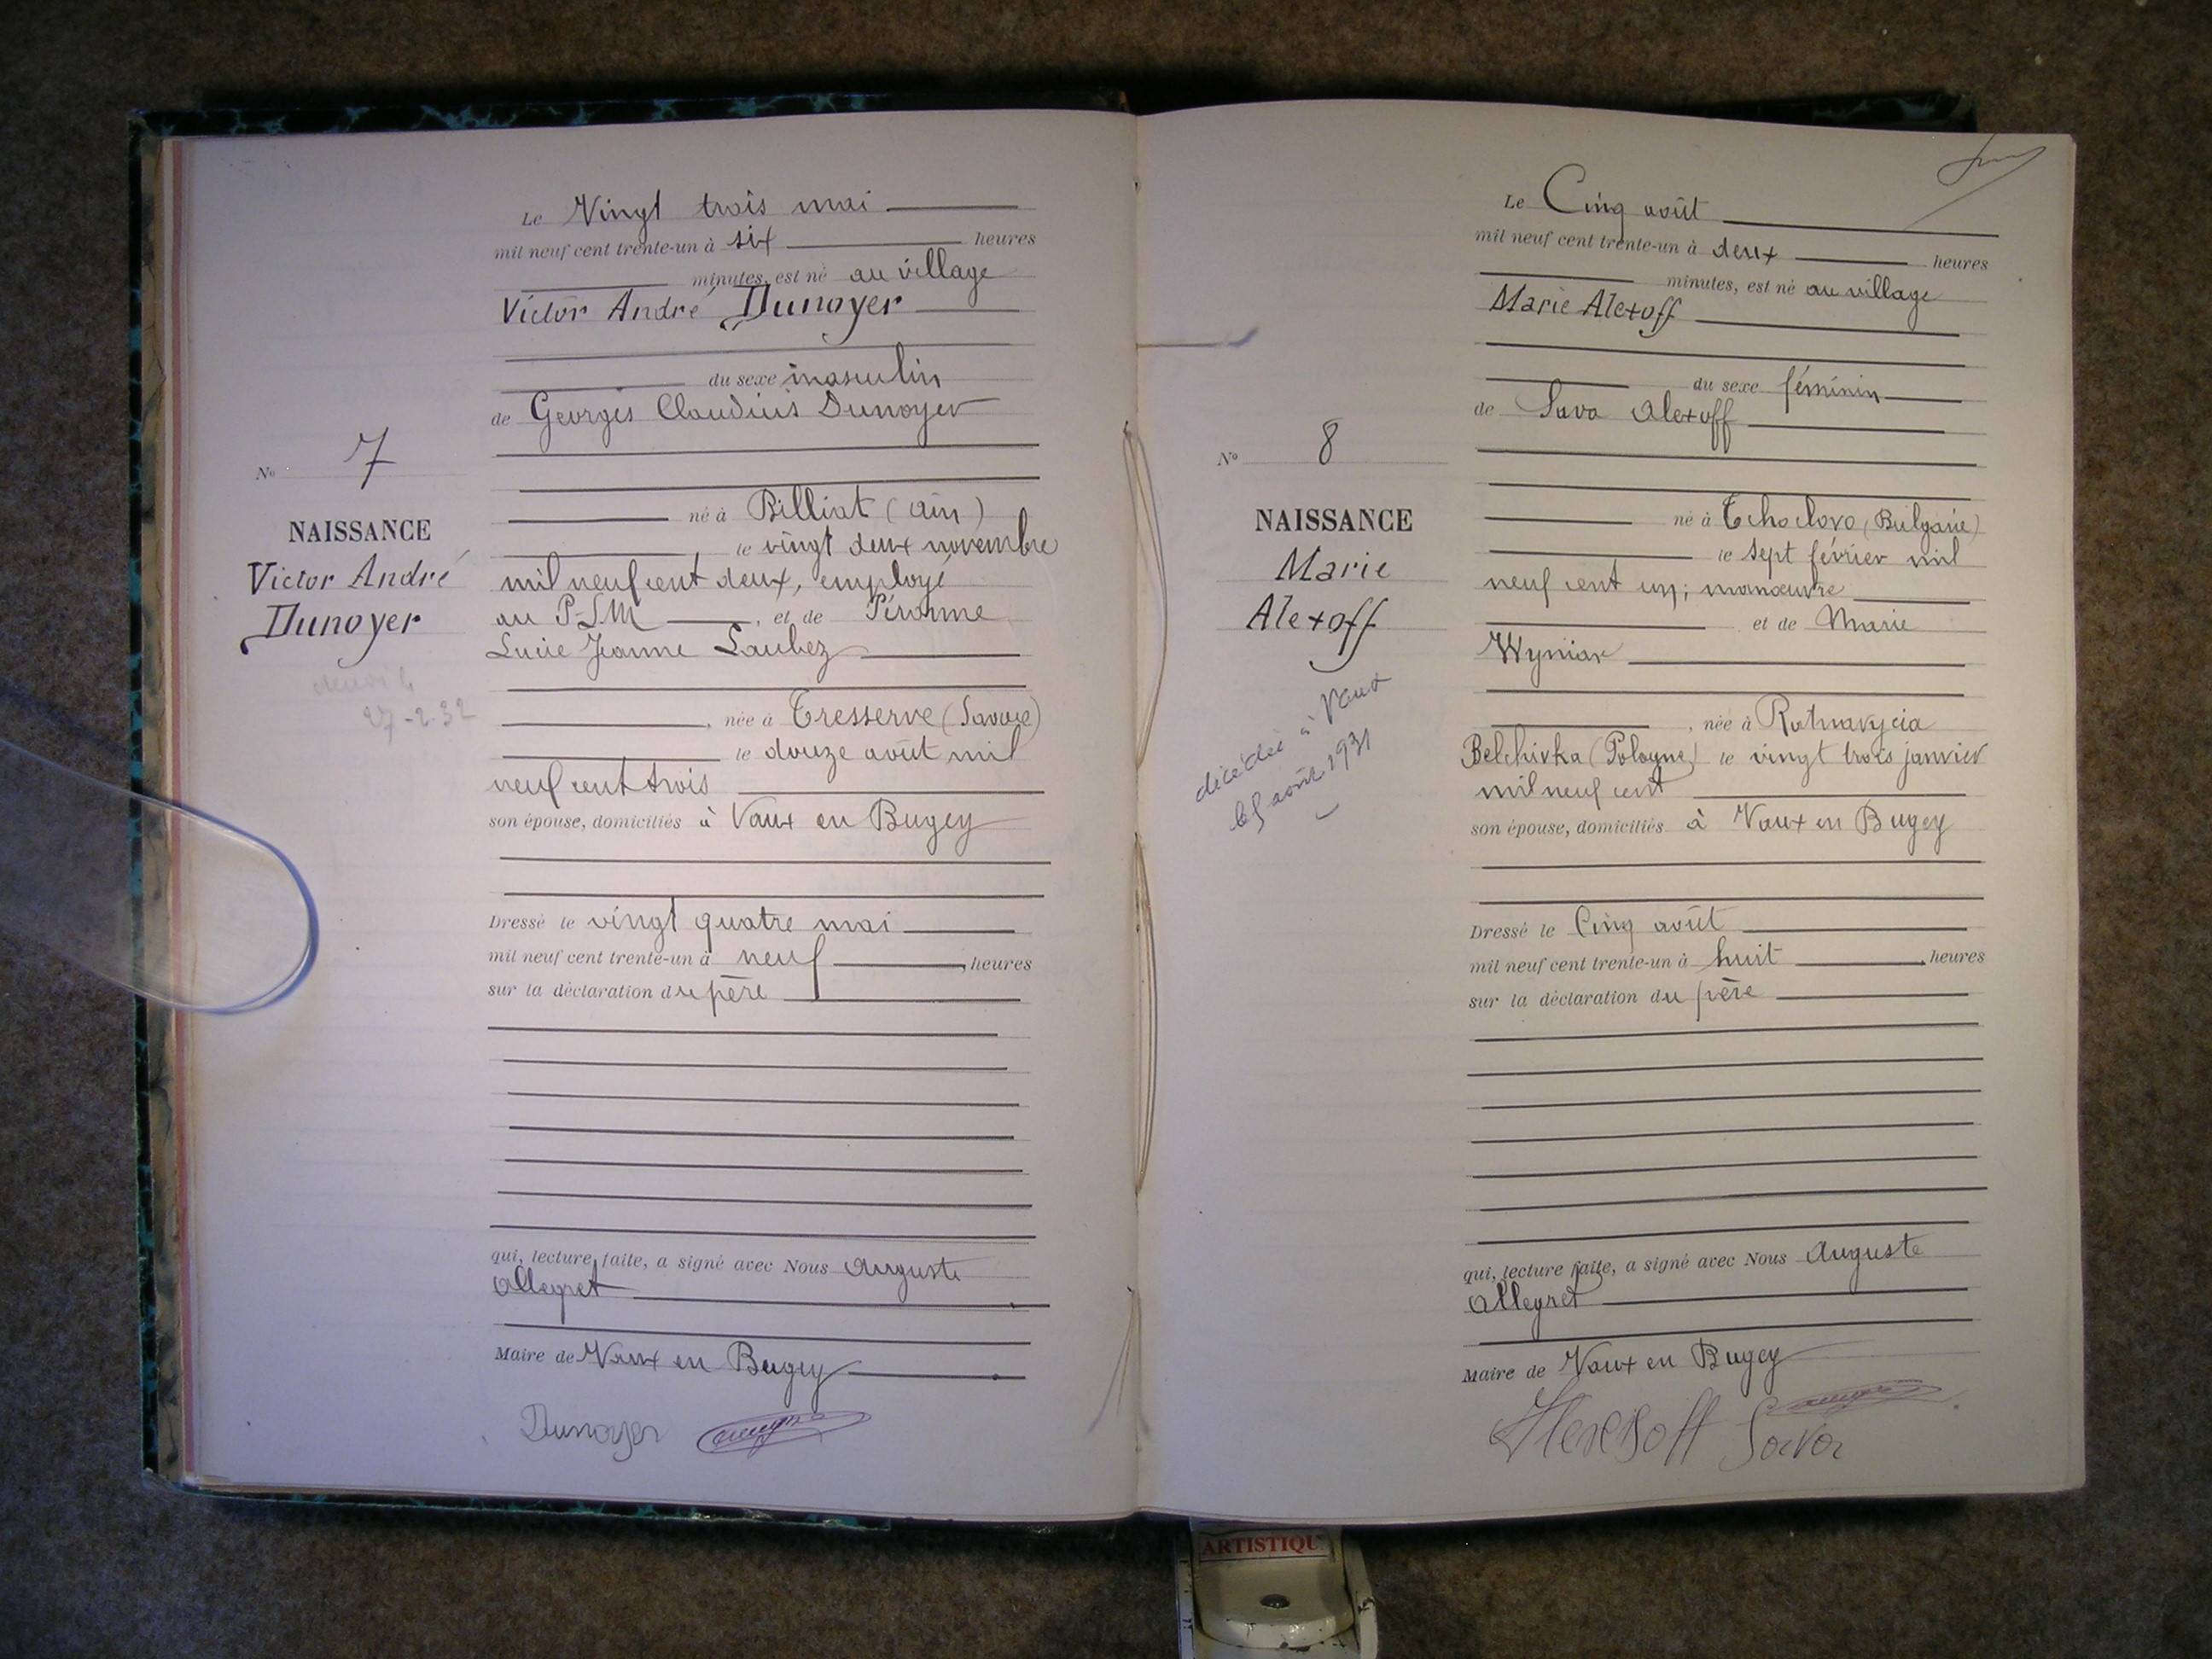 Le Vingt trois mai
mil neuf cent trente-un à six heures
minutes, est né au village
Victor André Dunoyer
du sexe masculin
de Georges Claudius Dunoyer
No 7
né à Billiat (Ain)
NAISSANCE
le vingt deux novembre
Victor André
mil neuf cent deux, employé
Dunoyer
au P-L M, et de Péronne
Lucie Jeanne Laubez
27-2-32
née à Tresserve (Savoie)
le douze août mil
neuf cent trois
son épouse, domiciliés à Vaux en Bugey
Dressé le vingt quatre mai
mil neuf cent trente-un à neuf heures
sur la déclaration du père
qui, lecture faite, a signé avec Nous Auguste
Allegret
Maire de Vaux en Bugey
Dunoyer
Le Cinq août
mil neuf cent trente-un à deux heures
minutes, est né au village
Marie Alexoff
du sexe féminin
de Sava Alexoff
No 8
né à Tchoclovo (Bulgarie)
NAISSANCE
le sept février mil
Marie
neuf cent un; manœuvre
Alexoff
et de Marie
Wyniar
décédée à Vaux
le 5 août 1931
née à
Belchivka (Pologne) le vingt trois janvier
mil neuf cent
son épouse, domiciliés à Vaux en Bugey
Dressé le Cinq août
mil neuf cent trente-un à huit heures
sur la déclaration du père
qui, lecture faite, a signé avec Nous Auguste
Allegret
Maire de Vaux en Bugey
Sava
ARTISTIQU